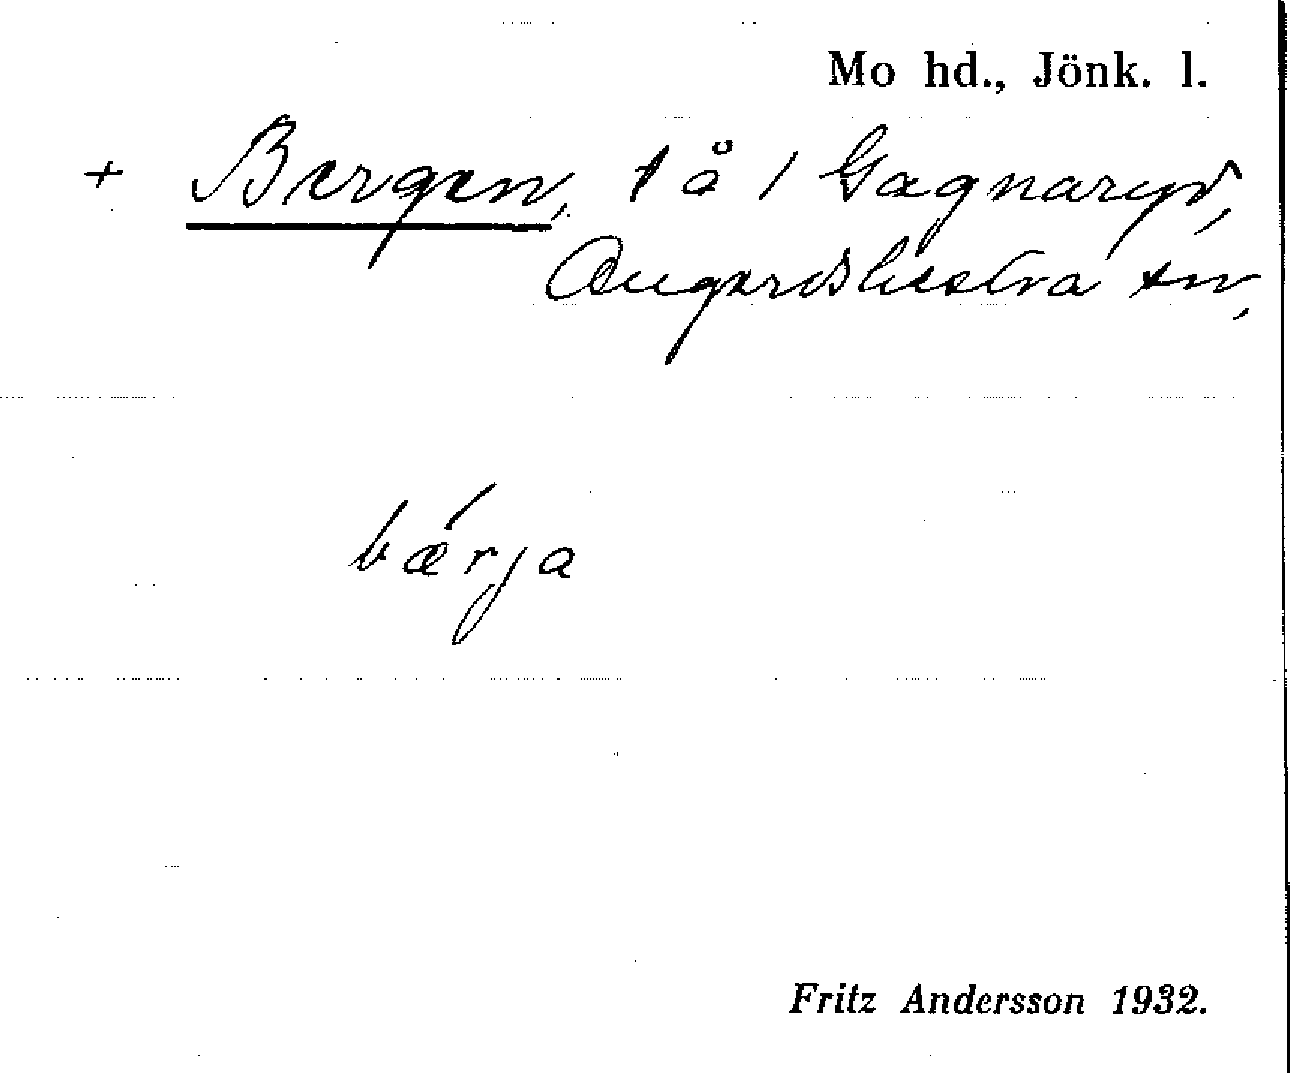 Mo hd., Jönk. l.
+ Bergen, t å / Gagnaryd,
Ångerdshestra sn,
bǽrja
Fritz Andersson 1932.